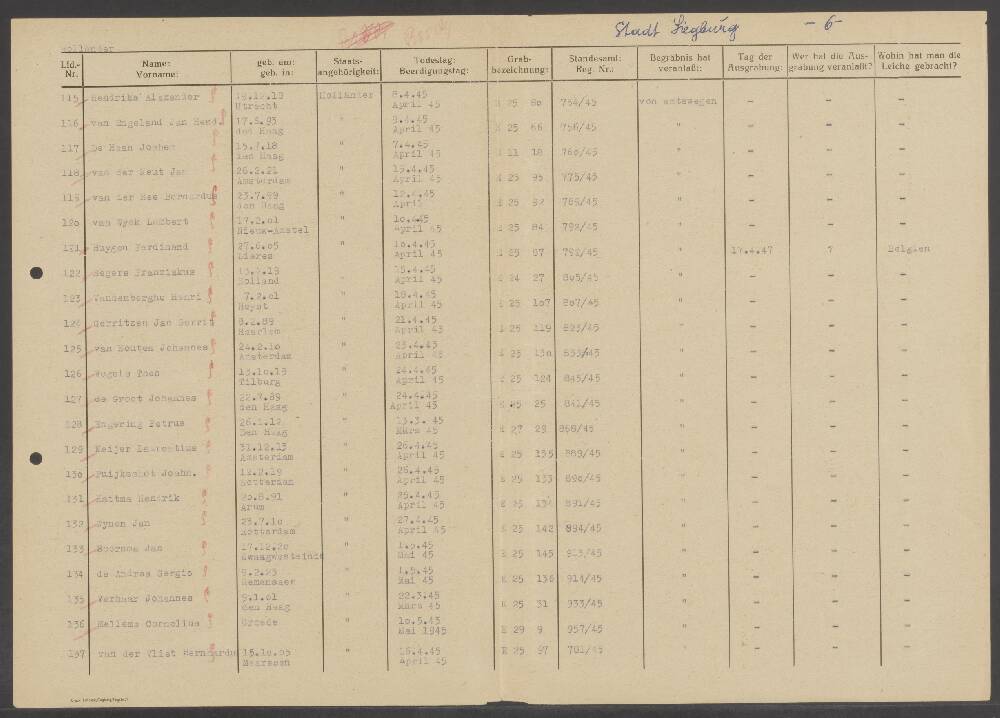 Stadt Siegburg - 6 -
Holländer
Lfd.- Nr. Name: Vorname: geb. am: geb. in: Staats- angehörigkeit: Todestag: Beerdigungstag: Grab- bezeichnung: Standesamt: Reg. Nr.: Begräbnis hat veranlaßt: Tag der Ausgrabung: Wer hat die Aus- grabung veranlaßt? Wohin hat man die Leiche gebracht?
115 Hendriks Alexander Holländer 8.4.45 E 25 80 764/45 von amtswegen - - -
Utrecht April 45
116 van Engeland Jan Hend. 17.6.93 " 9.4.45 E 25 66 766/45 " - - -
den Haag April 45
117 De Haan Jochem 15.7.18 " 7.4.45 E 11 18 760/45 " - - -
Den Haag April 45
118 van der Jan 26.2.21 " 15.4.45 E 25 95 775/45 " - - -
Amsterdam April 45
119 van der Hee Bernardus 23.7.99 " 12.4.45 E 25 92 " - - -
den Haag April
120 van Wyck Lambert 17.2.01 " 10.4.45 E 25 84 792/45 " - - -
Nieux-Amstel April 45
121 Huygen Ferdinand 27.6.05 " 10.4.45 E 25 87 " 17.4.47 ? Belgien
Lieres April 45
122 Segers Franziskus " 15.4.45 E 24 27 805/45 " - - -
Holland April 45
123 Vandenberghe Henri 7.2.01 " 18.4.45 E 25 107 807/45 " - - -
Heyst April 45
124 Gerritzen Jan Gerrit 8.2.89 " 21.4.45 E 25 119 823/45 " - - -
Haarlem April 45
125 van Houten Johannes 24.2.10 " 23.4.45 E 25 130 833/45 " - - -
Amsterdam April 45
126 Vogels Theo 13.10.19 " 24.4.45 E 25 124 845/45 " - - -
Tilburg April 45
127 de Groot Johannes 22.7.89 " 24.4.45 E 25 25 841/45 " - - -
den Haag April 45
128 Engering Petrus 26.1.12 " 13.3. 45 E 27 29 868/45 " - - -
Den Haag März 45
129 Meijer Laurentius 31.12.13 " 26.4.45 E 25 135 889/45 " - - -
Amsterdam April 45
130 Puijkschot Joahn. 12.2.19 " 26.4.45 E 25 133 890/45 " - - -
Rotterdam April 45
131 Hattma Hendrik 20.8.91 " 25.4.45 E 25 134 891/45 " - - -
Arum April 45
132 Wynen Jan 23.7.10 " 27.4.45 E 25 142 894/45 " - - -
Rotterdam April 45
133 Boersma Jan 17.12.20 " 1.5.45 E 25 145 913/45 " - - -
Zwaagwesteinde Mai 45
134 de Andres Sergio 9.2.23 " 1.5.45 E 25 136 914/45 " - - -
Mai 45
135 Verhaar Johannes 9.1.01 " 22.3.45 E 25 31 933/45 " - - -
den Haag März 45
136 Mellema Cornelius Groede " 10.5.45 E 29 9 957/45 " - - -
Mai 1945
137 van der Vlist Bernardus 15.10.05 " 16.4.45 E 25 97 781/45 " - - -
Maarssen April 45